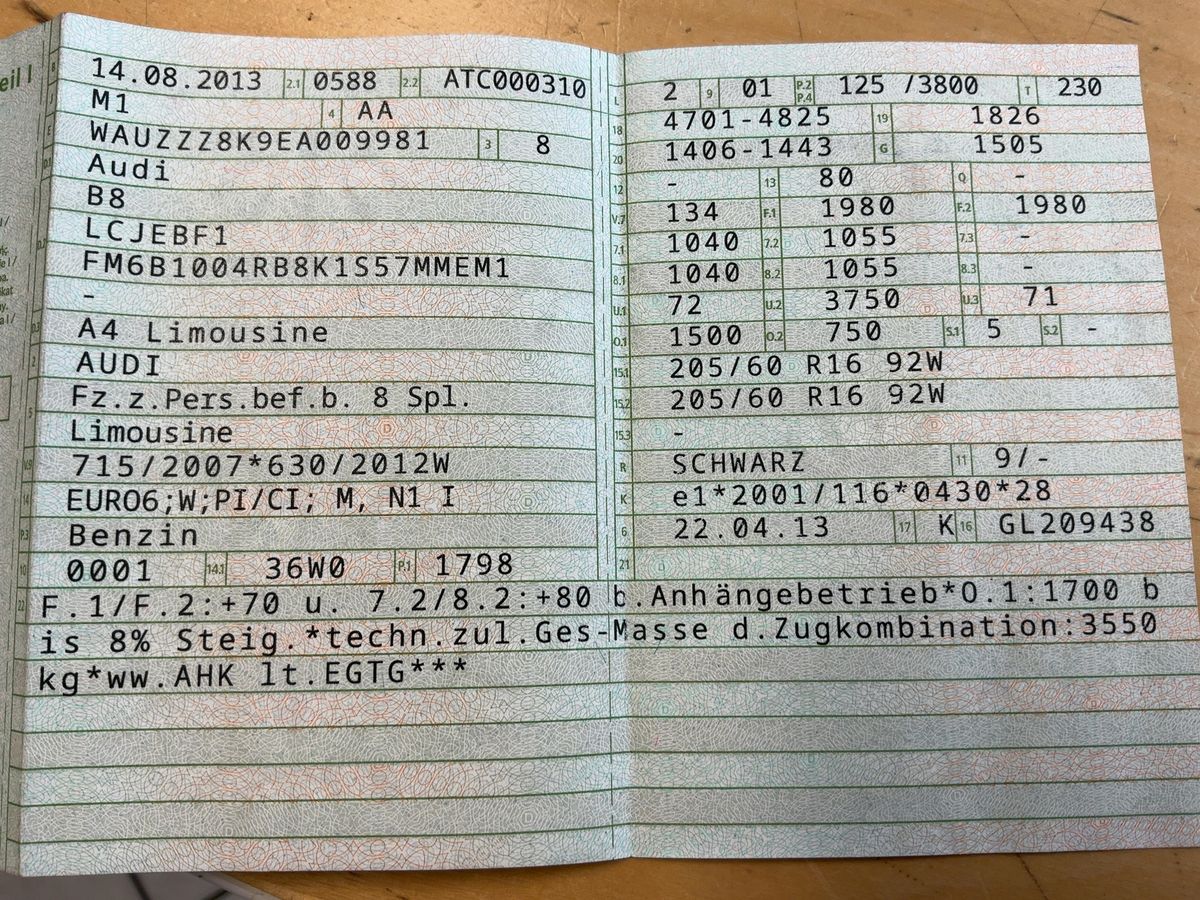 eil I
B 14.08.2013 2.1 0588 2.2 ATC000310
J M1 4 AA
E WAUZZZ8K9EA009981 3 8
D.1 Audi
B8
D.2 LCJEBF1
FM6B1004RB8K1S57MMEM1
-
D.3 A4 Limousine
2 AUDI
5 Fz.z.Pers.bef.b. 8 Spl.
Limousine
V.9 715/2007*630/2012W
14 EURO6;W;PI/CI; M, N1 I
P.3 Benzin
10 0001 14.1 36W0 P.1 1798
L 2 9 01 P.2 P.4 125 /3800 T 230
18 4701-4825 19 1826
20 1406-1443 G 1505
12 - 13 80 Q -
V.7 134 F.1 1980 F.2 1980
7.1 1040 7.2 1055 7.3 -
8.1 1040 8.2 1055 8.3 -
U.1 72 U.2 3750 U.3 71
O.1 1500 O.2 750 S.1 5 S.2 -
15.1 205/60 R16 92W
15.2 205/60 R16 92W
15.3 -
R SCHWARZ 11 9/-
K e1*2001/116*0430*28
6 22.04.13 17 K 16 GL209438
21
22 F.1/F.2:+70 u. 7.2/8.2:+80 b.Anhängebetrieb*O.1:1700 b
is 8% Steig.*techn.zul.Ges-Masse d.Zugkombination:3550
kg*ww.AHK lt.EGTG***